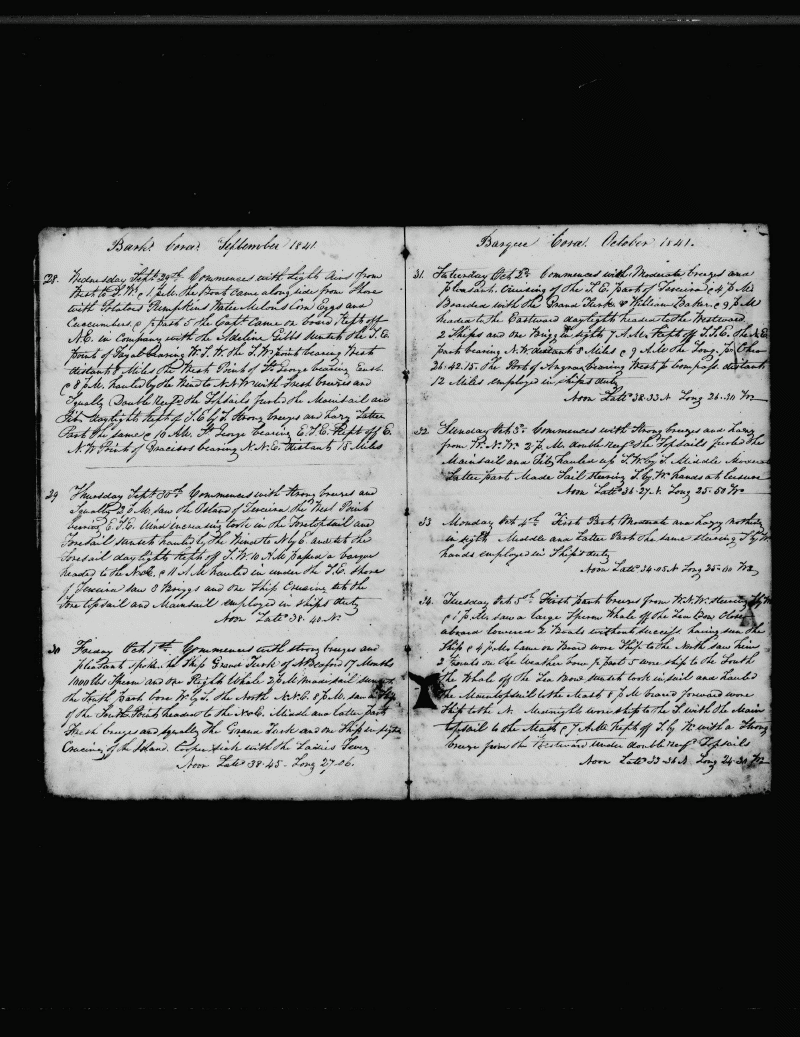 Bark Cora September 1841
28 Wednesday Sept 29th Commences with Light Airs from
West to S.W. @ 1 P.M. the Boat came along side from Shore
with Potatoes Pumpkins Water Melons Corn Eggs and
Cucumbers @ ½ past 5 the Capt Came on board Kept off
N.E. in Company with the Adeline Gibbs Sunset the S.E.
point of Fayal bearing W.S.W. the S.W. point bearing West
distant 8 Miles the West Point of St George bearing East
@ 8 P.M. hauled by the Wind to N.N.W with fresh breezes and
Squally Double Reefd the Topsails furled the Mainsail and
Jib daylights Kept off S.E. by S Strong breezes and hazy Latter
Part the same @ 10 A.M. St George bearing E.S.E. Kept off E.
N.W. Point of Graciosa bearing N.N.E. distant 18 Miles
29 Thursday Sept 30th Commences with Strong breezes and
Squally 2 P.M. saw the Island of Terceira the West Point
bearing E.S.E. Wind increasing took in the Foretopsail and
Foresail sunset hauled by the Wind to N by E and set the
Foresail daylights Kept off S.W. 10 A.M passed a barque
headed to the N.E. @ 11 A.M hauled in under the S.E. shore
of Terceira saw 3 Briggs and one Ship Cruising set the
Fore topsail and Mainsail employed in ships duty
Noon Latd 38.40 N.
30 Friday Oct 1st Commences with strong breezes and
pleasant spoke the Ship Grand Turk of N Bedford 17 Months
1000 bbls Sperm and one Right Whale 2 P.M. Mainsail
the South Part bore W by S. the North N.N.E. 8 P.M. saw a
of the South Point headed to the N&E. Middle and latter part
fresh breezes and squally the Grand Turk and one Ship in sight
Cruising of the Island. Cooper sick with the Ladies Fever
Noon Latd 38.45 Long 27.06.
Barque Cora. October 1841.
31. Saturday Oct 2d Commences with Moderate breezes and
pleasant. Cruising of the S.E. Part of Terceira @ 4 P.M.
Boarded with the Grand Turk & William Baker. @ 9 P.M
headed to the Eastward daylights headed to the Westward
2 Ships and one Brigg in sight 7 A.M. Kept off S.S.E. the N.E.
part bearing N.W. distant 8 Miles @ 9 A.M the Long. pr Chro
26.42.15. the Port of Angra bearing West pr Compass distant
12 Miles employed in ships duty
Noon Latd 38.33 N Long 26.30 W
32 Sunday Oct 3d Commences with Strong breezes and hazy
from W.N.W. 2 P.M. double reefd the Topsails furled the
Mainsail and Jib hauled up S.W. by S. Middle Moderate
Latter part Made Sail steering S by W. hands at leisure
Noon Latd 36.27 N. Long 25.50 W
33 Monday Oct 4th First Part Moderate and hazy nothing
in sight Middle and Latter Part the same steering S by W
hands employed in Ships duty
Noon Latd 34.05 N Long 25.00 W
34. Tuesday Oct 5th First part breezes from W.N.W. steering S by W
@ 1 P.M. saw a large Sperm Whale off the Lee Bow close
aboard lowered 2 Boats without success having seen the
Ship @ 4 P.M. Came on Board wore Ship to the North saw him
2 Spouts on the Weather bow ½ past 5 wore ship to the South
the Whale off the Lee Bow sunset took in sail and hauled
the Maintopsail to the Mast 8 P.M braced forward wore
Ship to the N. Midnight wore ship to the S. with the Main
topsail to the Mast @ 7 A.M Kept off S. by W. with a Strong
breeze from the Westward under double reefd Topsails
Noon Latd 33.36 N Long 24.30 W